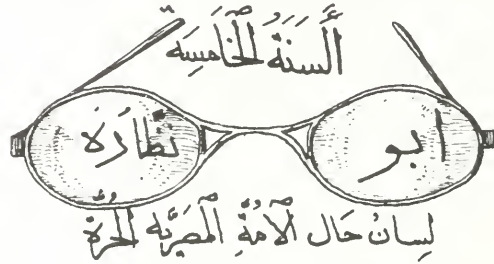 أَلسَنَةُ الْخَامِسَه
ابو نظارَه
لِسانُ حَال الْأُمَّةِ الْمَصرِيَّه الْحُرَّة